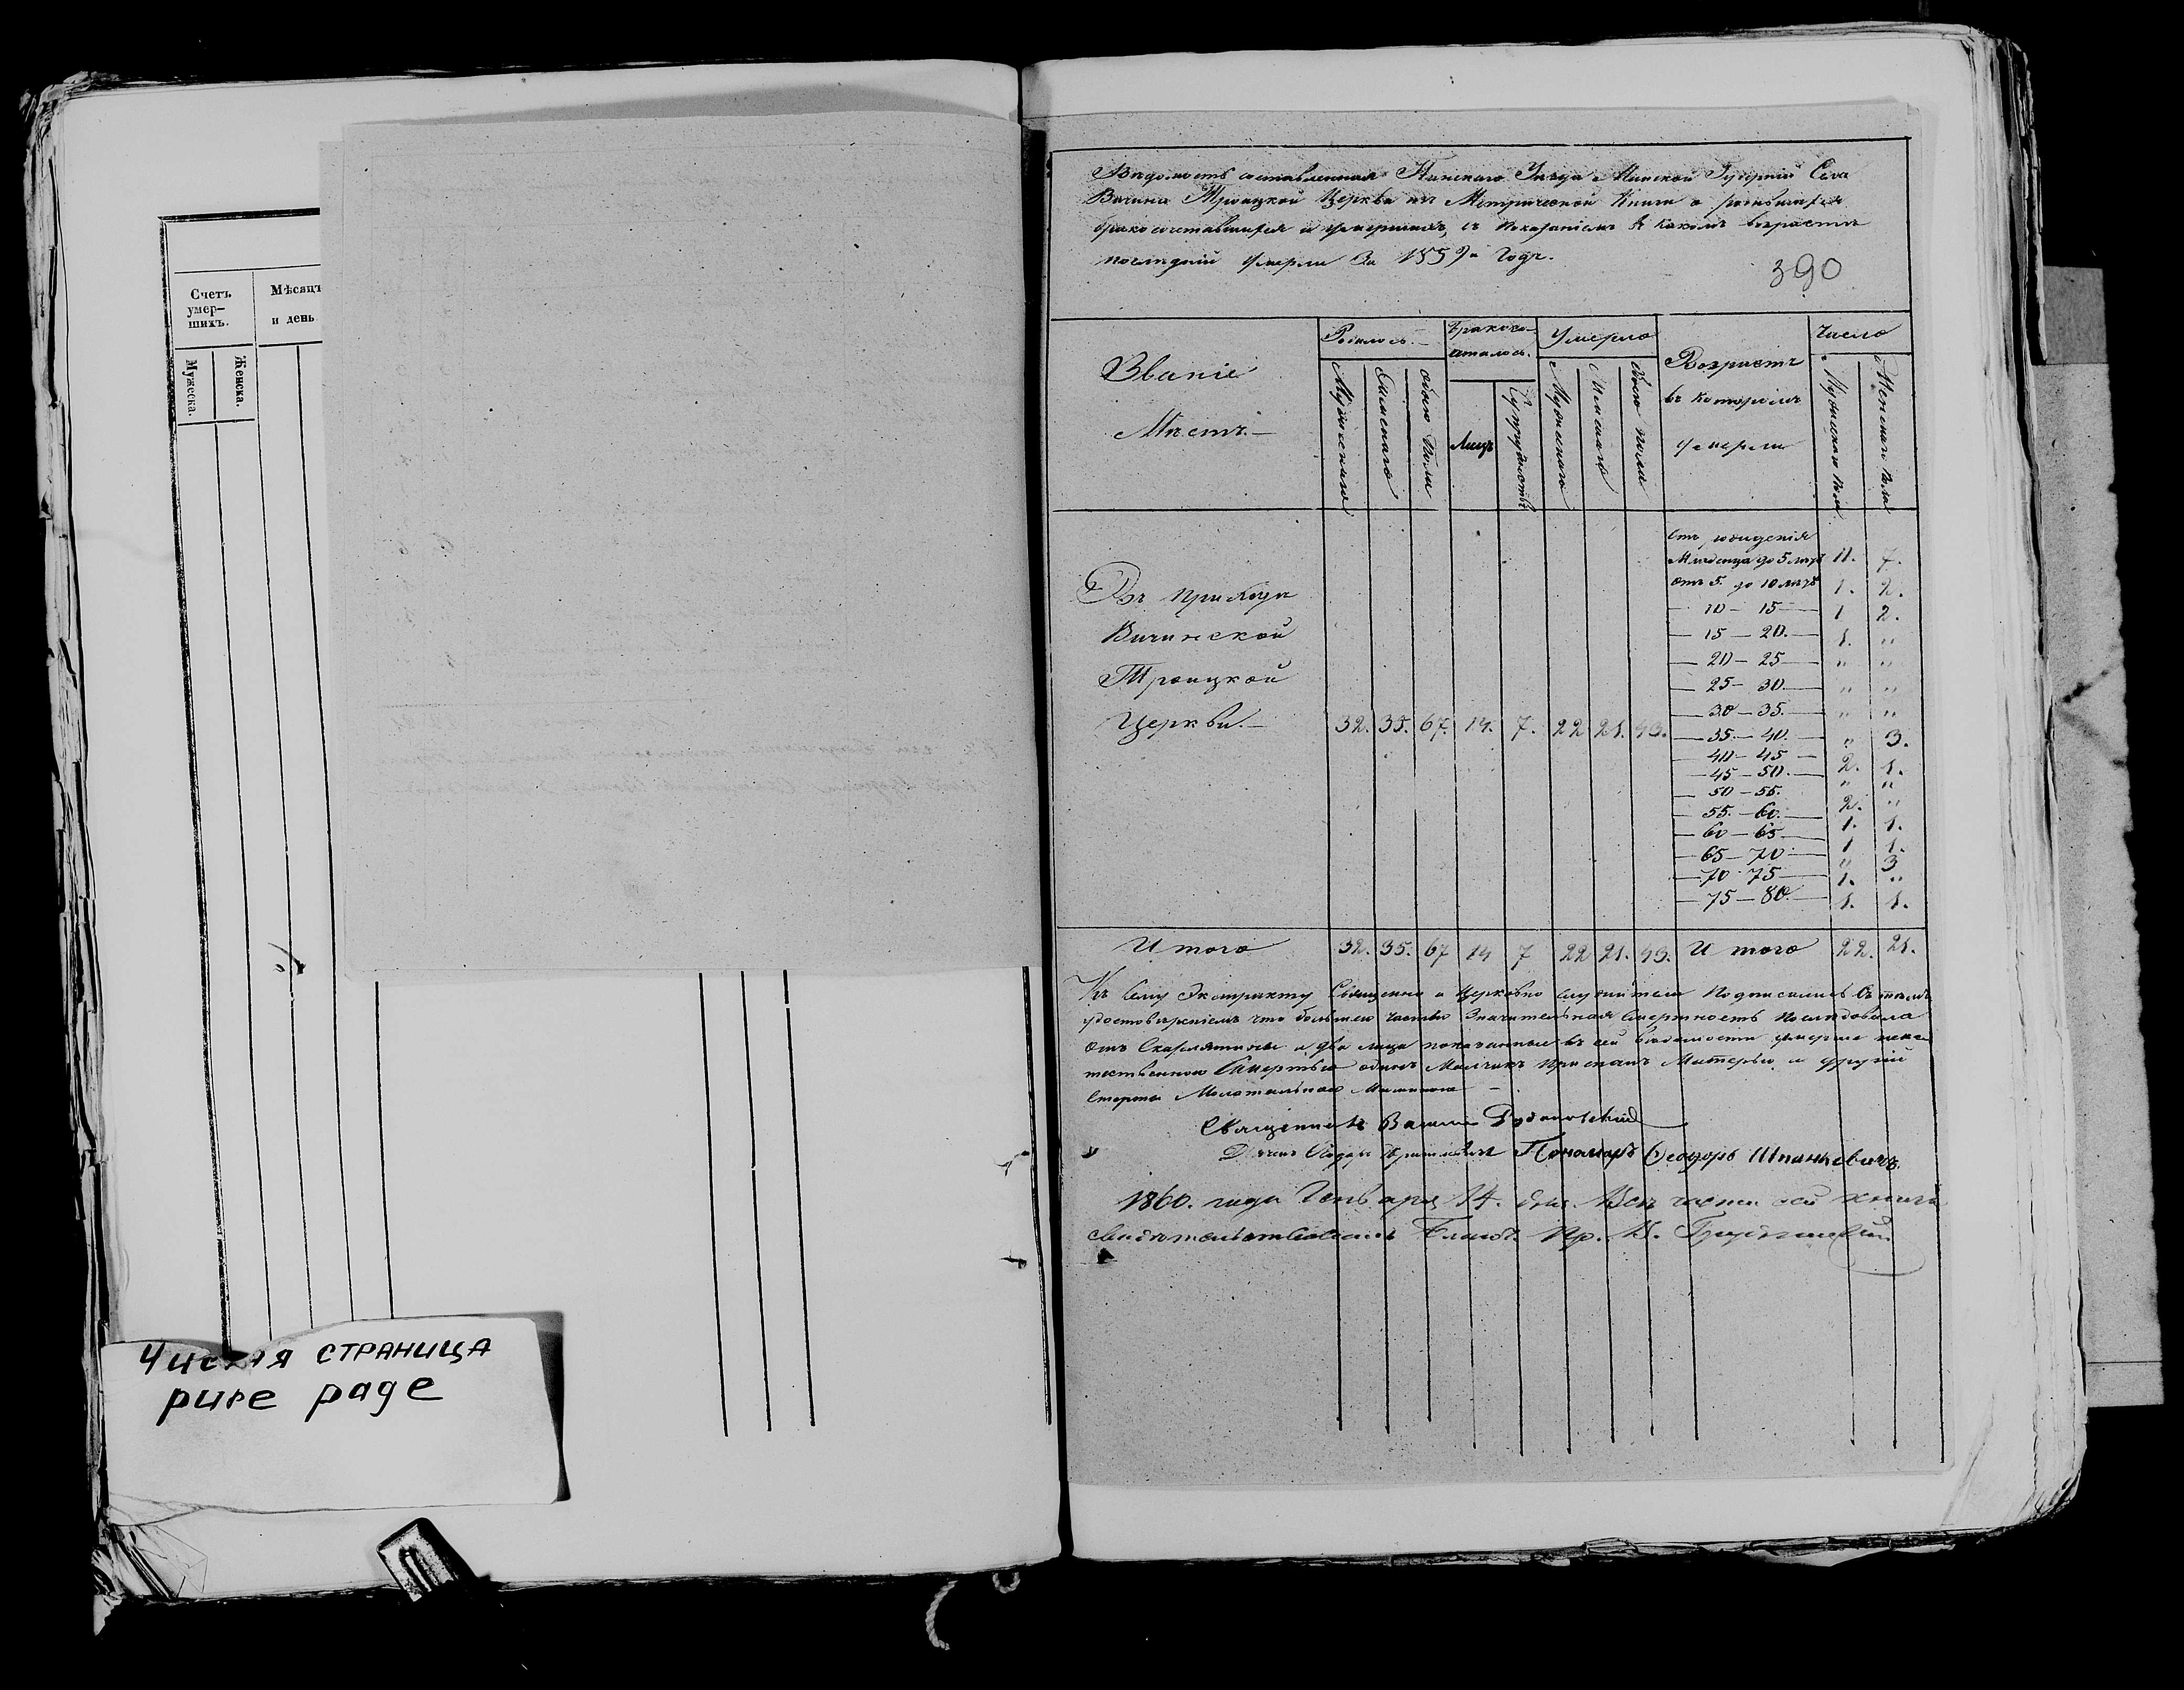 Счетъ
умер-
шихъ.
Мѣсяцъ
и день
Мужеска.
Женска.
Чистая страница
pure page
Вѣдомость составленная Пинскаго Уѣзда Минской Губерніи Села
Вичина Троицкой Церкви изъ Метрической Книги о родившихся
бракосочетавшихся и умершихъ, съ показаніемъ въ какомъ возрастѣ
послѣдніи умерли За 1859й Годъ.
390
Званіе
Мѣстъ.
Родилось.
Мужескаго
Женскаго
обоего Пола
Бракосо-
чталось.
Лицъ
Супружествъ
Умерло
Мужескаго
Женскаго
Обоего пола
Возрастъ
въ которомъ
умерли
Число
Мужескаго Пола
Женскаго Пола
Отъ рожденія
Младенца до 5 лѣтъ 11. 7.
Отъ 5. до 10 лѣтъ 1. 2.
10 — 15 1 2.
15 — 20. 1. "
20 — 25 " "
25 — 30. " "
30 — 35. " "
35. — 40. " 3.
40 — 45 2. 1.
45 — 50. " "
50 — 55. 2. "
55. — 60. 1. 1.
60 — 65 1 1.
65 — 70 " 3
70 75 1. "
75 — 80. 1. 1.
Въ приходѣ
Вичинской
Троицкой
Церкви. 32. 35. 67. 14. 7. 22 21. 43.
Итого 32. 35. 67 14 7 22 21. 43. Итого 22. 21.
Къ сему Экстракту Священно и Церковно служители Подписались Съ тѣмъ
удостовѣреніемъ что большею частью Значительная Смертность послѣдовала
Отъ Скарлятины и два лица показанные въ сей вѣдомости умерше неес
тественною Смертью одинъ Мальчикъ приспанъ Матерью и другій
Стертъ
Священникъ Василій
Дьячекъ Ѳодоръ Пономарь Ѳеодоръ Шпаньковичъ.
1860. года Генваря 14. дня. Всѣ части сей книги
свидѣтельствовалъ Благоч. Пр. В.